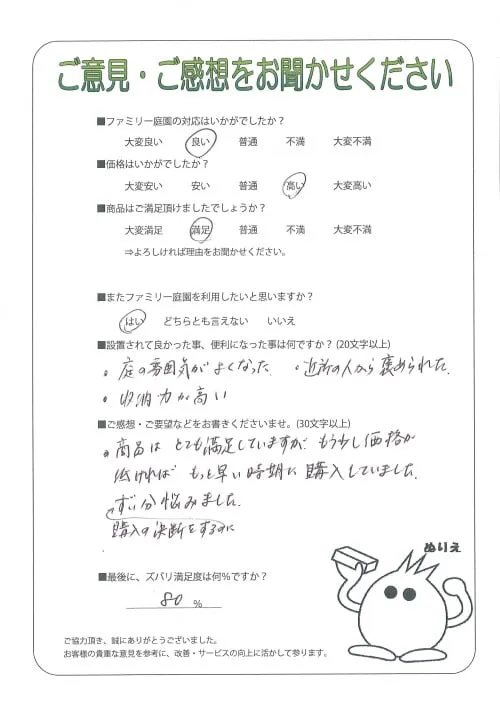 ご意見・ご感想をお聞かせください
■ファミリー庭園の対応はいかがでしたか？
大変良い 良い 普通 不満 大変不満
■価格はいかがでしたか？
大変安い 安い 普通 高い 大変高い
■商品はご満足頂けましたでしょうか？
大変満足 満足 普通 不満 大変不満
⇒よろしければ理由をお聞かせください。
■またファミリー庭園を利用したいと思いますか？
はい どちらとも言えない いいえ
■設置されて良かった事、便利になった事は何ですか？(20文字以上)
・庭の雰囲気がよくなった ・近所の人から褒められた
・収納力が高い
■ご感想・ご要望などをお書きくださいませ。(30文字以上)
・商品はとても満足していますが、もう少し価格が
低ければもっと早い時期に購入していました。
ずい分悩みました。
購入の決断をするのに
ぬりえ
■最後に、ズバリ満足度は何％ですか？
80 %
ご協力頂き、誠にありがとうございました。
お客様の貴重な意見を参考に、改善・サービスの向上に活かして参ります。